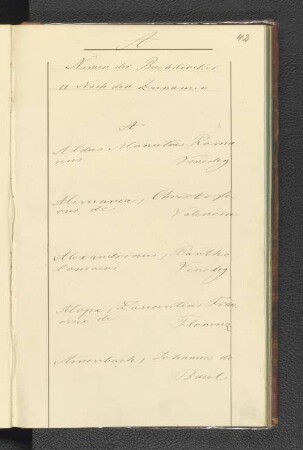 A
42
Namen der Buchdrucker
Nach den Zunamen
A
Aldus Manutius Roma
nus Venedig
Alemania, Christofo
rus de Valencia
Alexandrinus, Bartho
lomaeus Venedig
Alopa, Laurentius Fran
cisci de Florenz
Amerbach, Johannes de
Basel